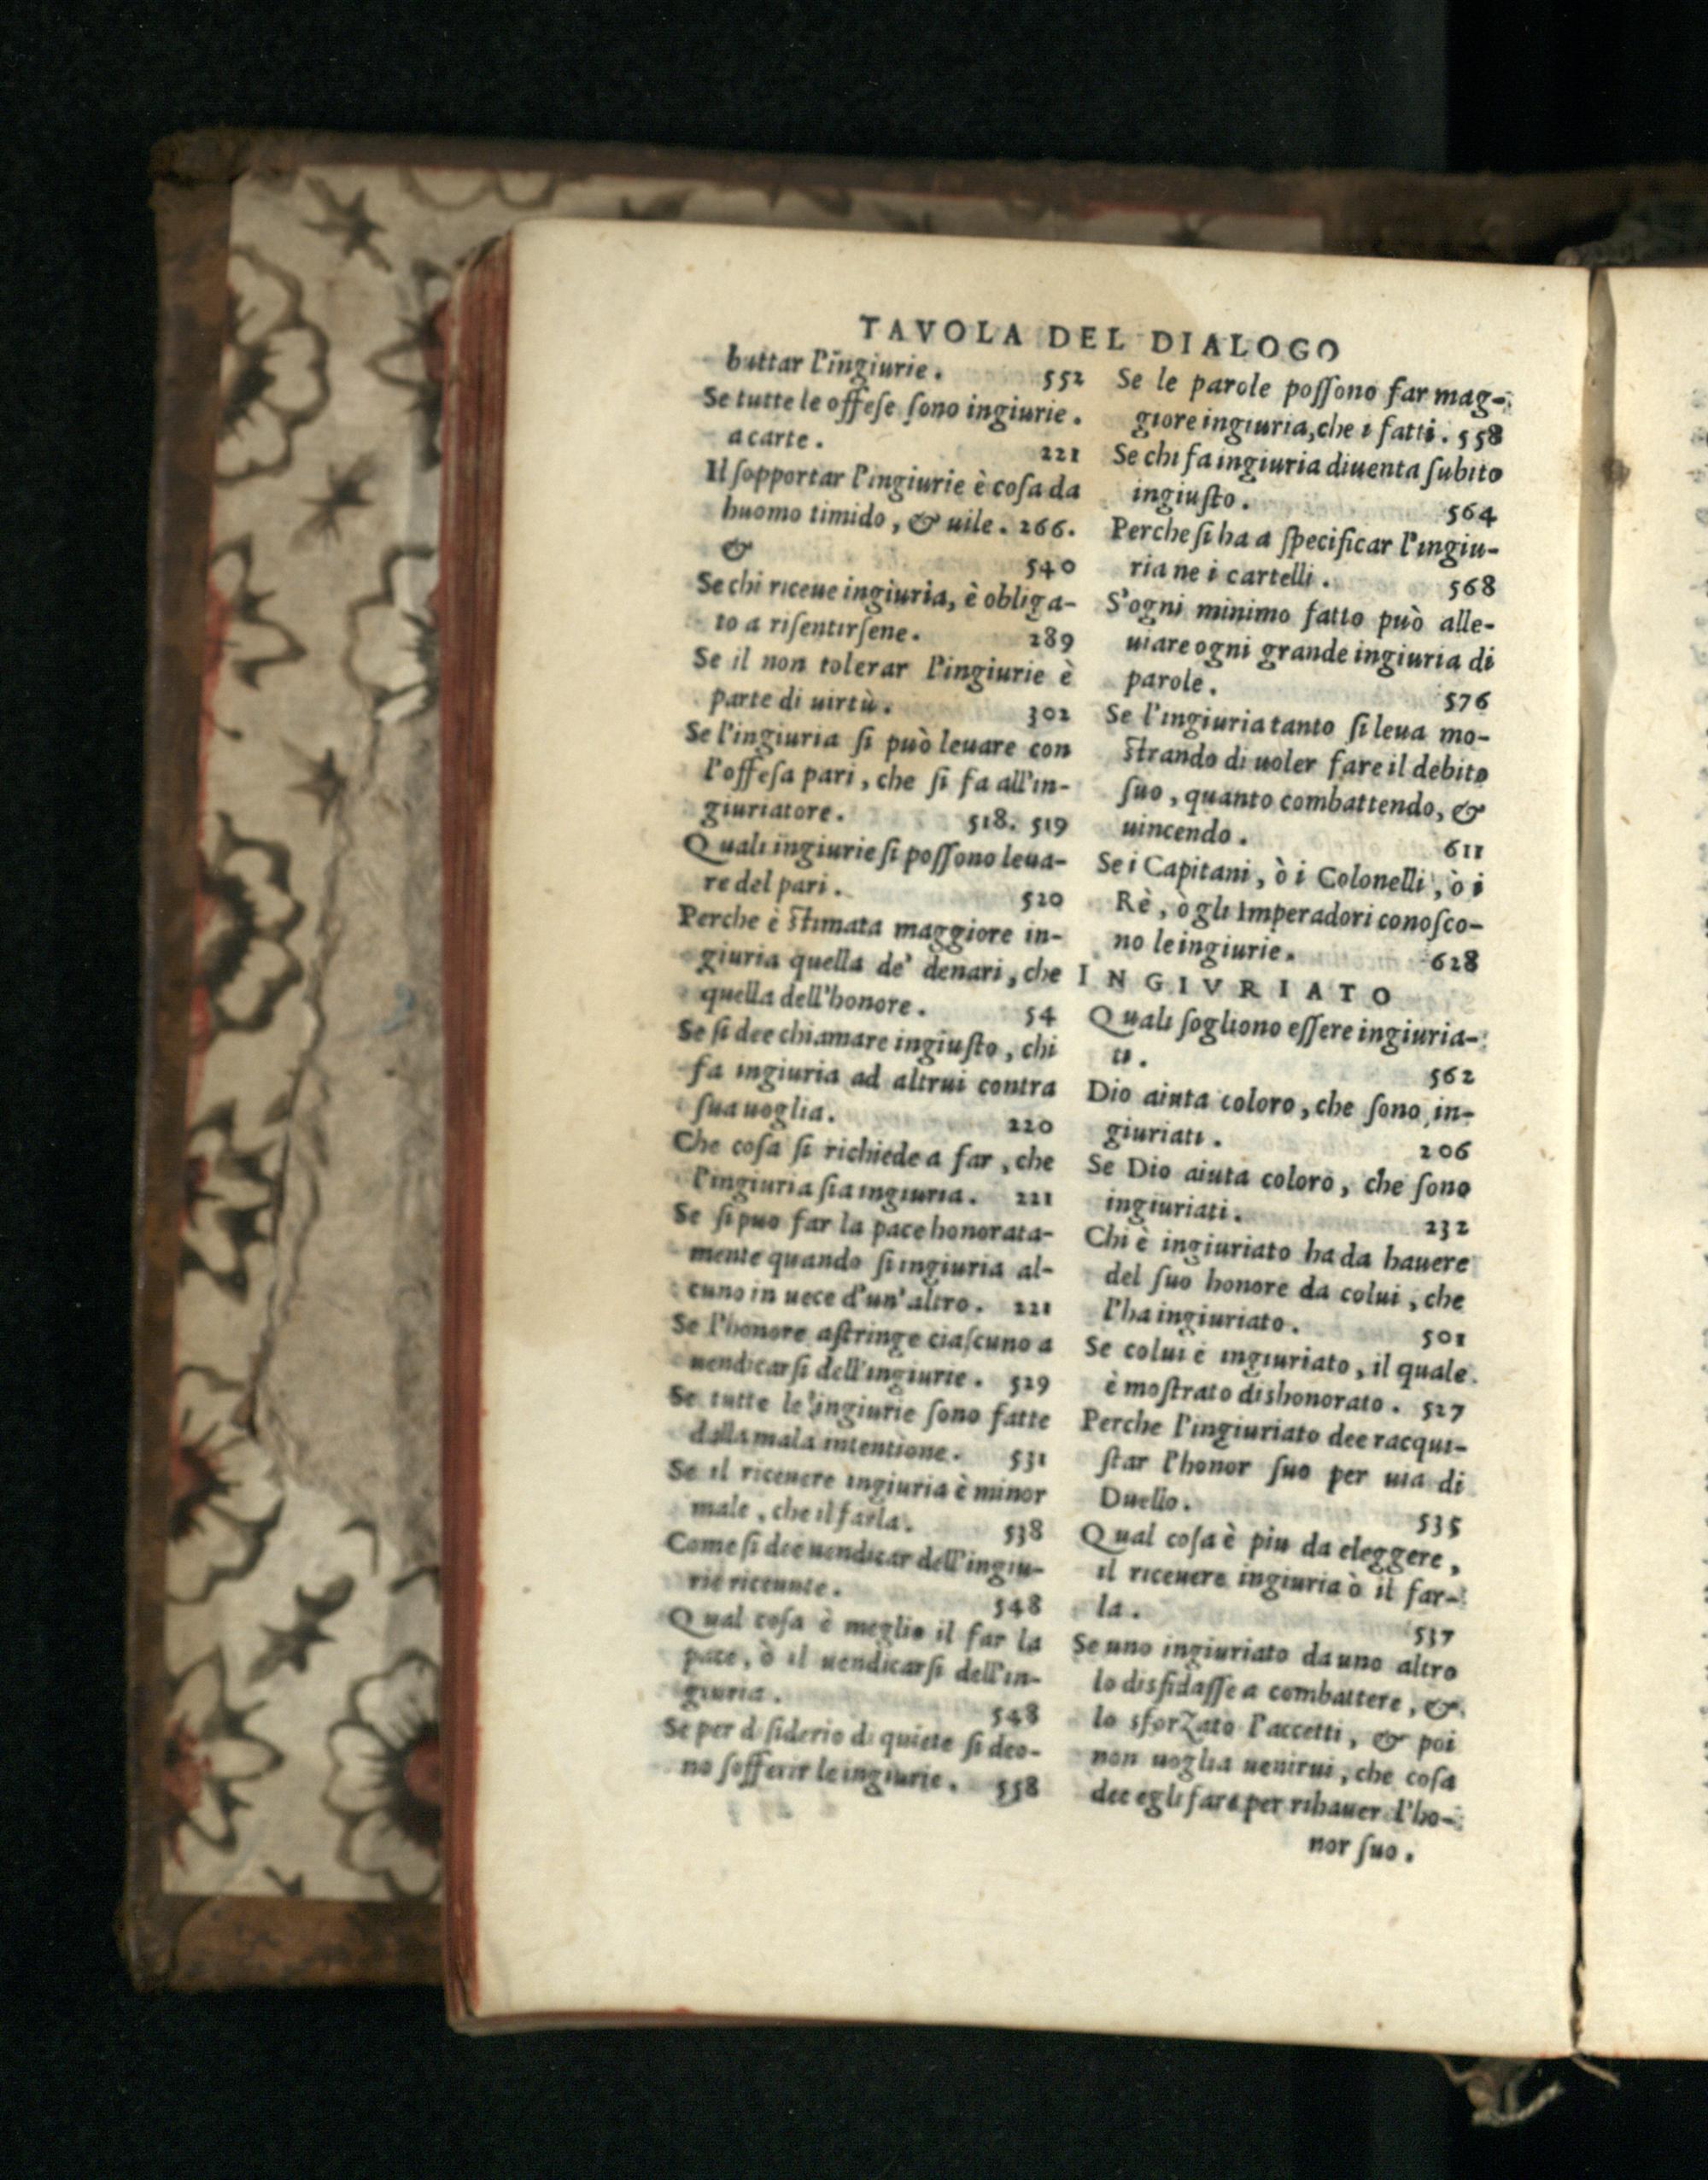 TAVOLA DEL DIALOGO
buttar l'ingiurie. 552
Se tutte le offeſe ſono ingiurie.
a carte. 221
Il ſopportar l'ingiurie è coſa da
huomo timido, & uile. 266.
& 540
Se chi riceue ingiuria, è obliga-
to a riſentirſene. 289
Se il non tolerar l'ingiurie è
parte di uirtù. 302
Se l'ingiuria ſi può leuare con
l'offeſa pari, che ſi fa all'in-
giuriatore. 518. 519
Quali ingiurie ſi poſſono leua-
re del pari. 520
Perche è ſtimata maggiore in-
giuria quella de' denari, che
quella dell'honore. 54
Se ſi dee chiamare ingiuſto, chi
fa ingiuria ad altrui contra
ſua uoglia. 220
Che coſa ſi richiede a far, che
l'ingiuria ſia ingiuria. 221
Se ſi puo far la pace honorata-
mente quando ſi ingiuria al-
cuno in uece d'un'altro. 221
Se l'honore aſtringe ciaſcuno a
uendicarſi dell'ingiurie. 529
Se tutte le ingiurie ſono fatte
dalla mala intentione. 531
Se il riceuere ingiuria è minor
male, che il farla. 538
Come ſi dee uendicar dell'ingiu-
rie riceuute. 548
Qual coſa è meglio il far la
pace, ò il uendicarſi dell'in-
giuria. 548
Se per d ſiderio di quiete ſi deo-
no ſofferir le ingiurie. 558
Se le parole poſſono far mag-
giore ingiuria, che i fatti. 558
Se chi fa ingiuria diuenta ſubito
ingiuſto. 564
Perche ſi ha a ſpecificar l'ingiu-
ria ne i cartelli. 568
S'ogni minimo fatto può alle-
uiare ogni grande ingiuria di
parole. 576
Se l'ingiuria tanto ſi leua mo-
ſtrando di uoler fare il debito
ſuo, quanto combattendo, &
uincendo. 611
Se i Capitani, ò i Colonelli, ò i
Rè, ò gli Imperadori conoſco-
no le ingiurie. 628
INGIVRIATO
Quali ſogliono eſſere ingiuria-
ti. 562
Dio aiuta coloro, che ſono in-
giuriati. 206
Se Dio aiuta coloro, che ſono
ingiuriati. 232
Chi è ingiuriato ha da hauere
del ſuo honore da colui, che
l'ha ingiuriato. 501
Se colui è ingiuriato, il quale
è moſtrato dishonorato. 527
Perche l'ingiuriato dee racqui-
ſtar l'honor ſuo per uia di
Duello. 535
Qual coſa è piu da eleggere,
il riceuere ingiuria ò il far-
la. 537
Se uno ingiuriato da uno altro
lo disfidaſſe a combattere, &
lo sforzato l'accetti, & poi
non uoglia uenirui, che coſa
dee egli fare per rihauer l'ho-
nor ſuo.